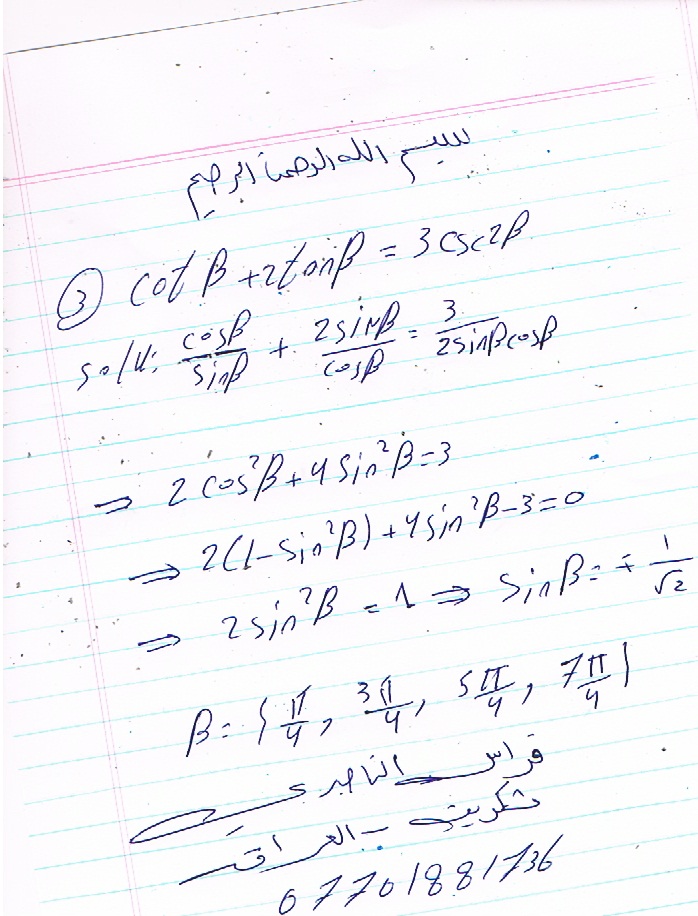 بسم الله الرحمن الرحيم
③ cot β + 2 tan β = 3 csc 2β
solu: cosβ/sinβ + 2sinβ/cosβ = 3/2sinβcosβ
⇒ 2 cos²β + 4 sin²β = 3
⇒ 2(1-sin²β) + 4 sin²β - 3 = 0
⇒ 2 sin²β = 1 ⇒ sinβ = ∓ 1/√2
β = { π/4 , 3π/4 , 5π/4 , 7π/4 }
فراس الناصري
تكريت - العراق
07701881736